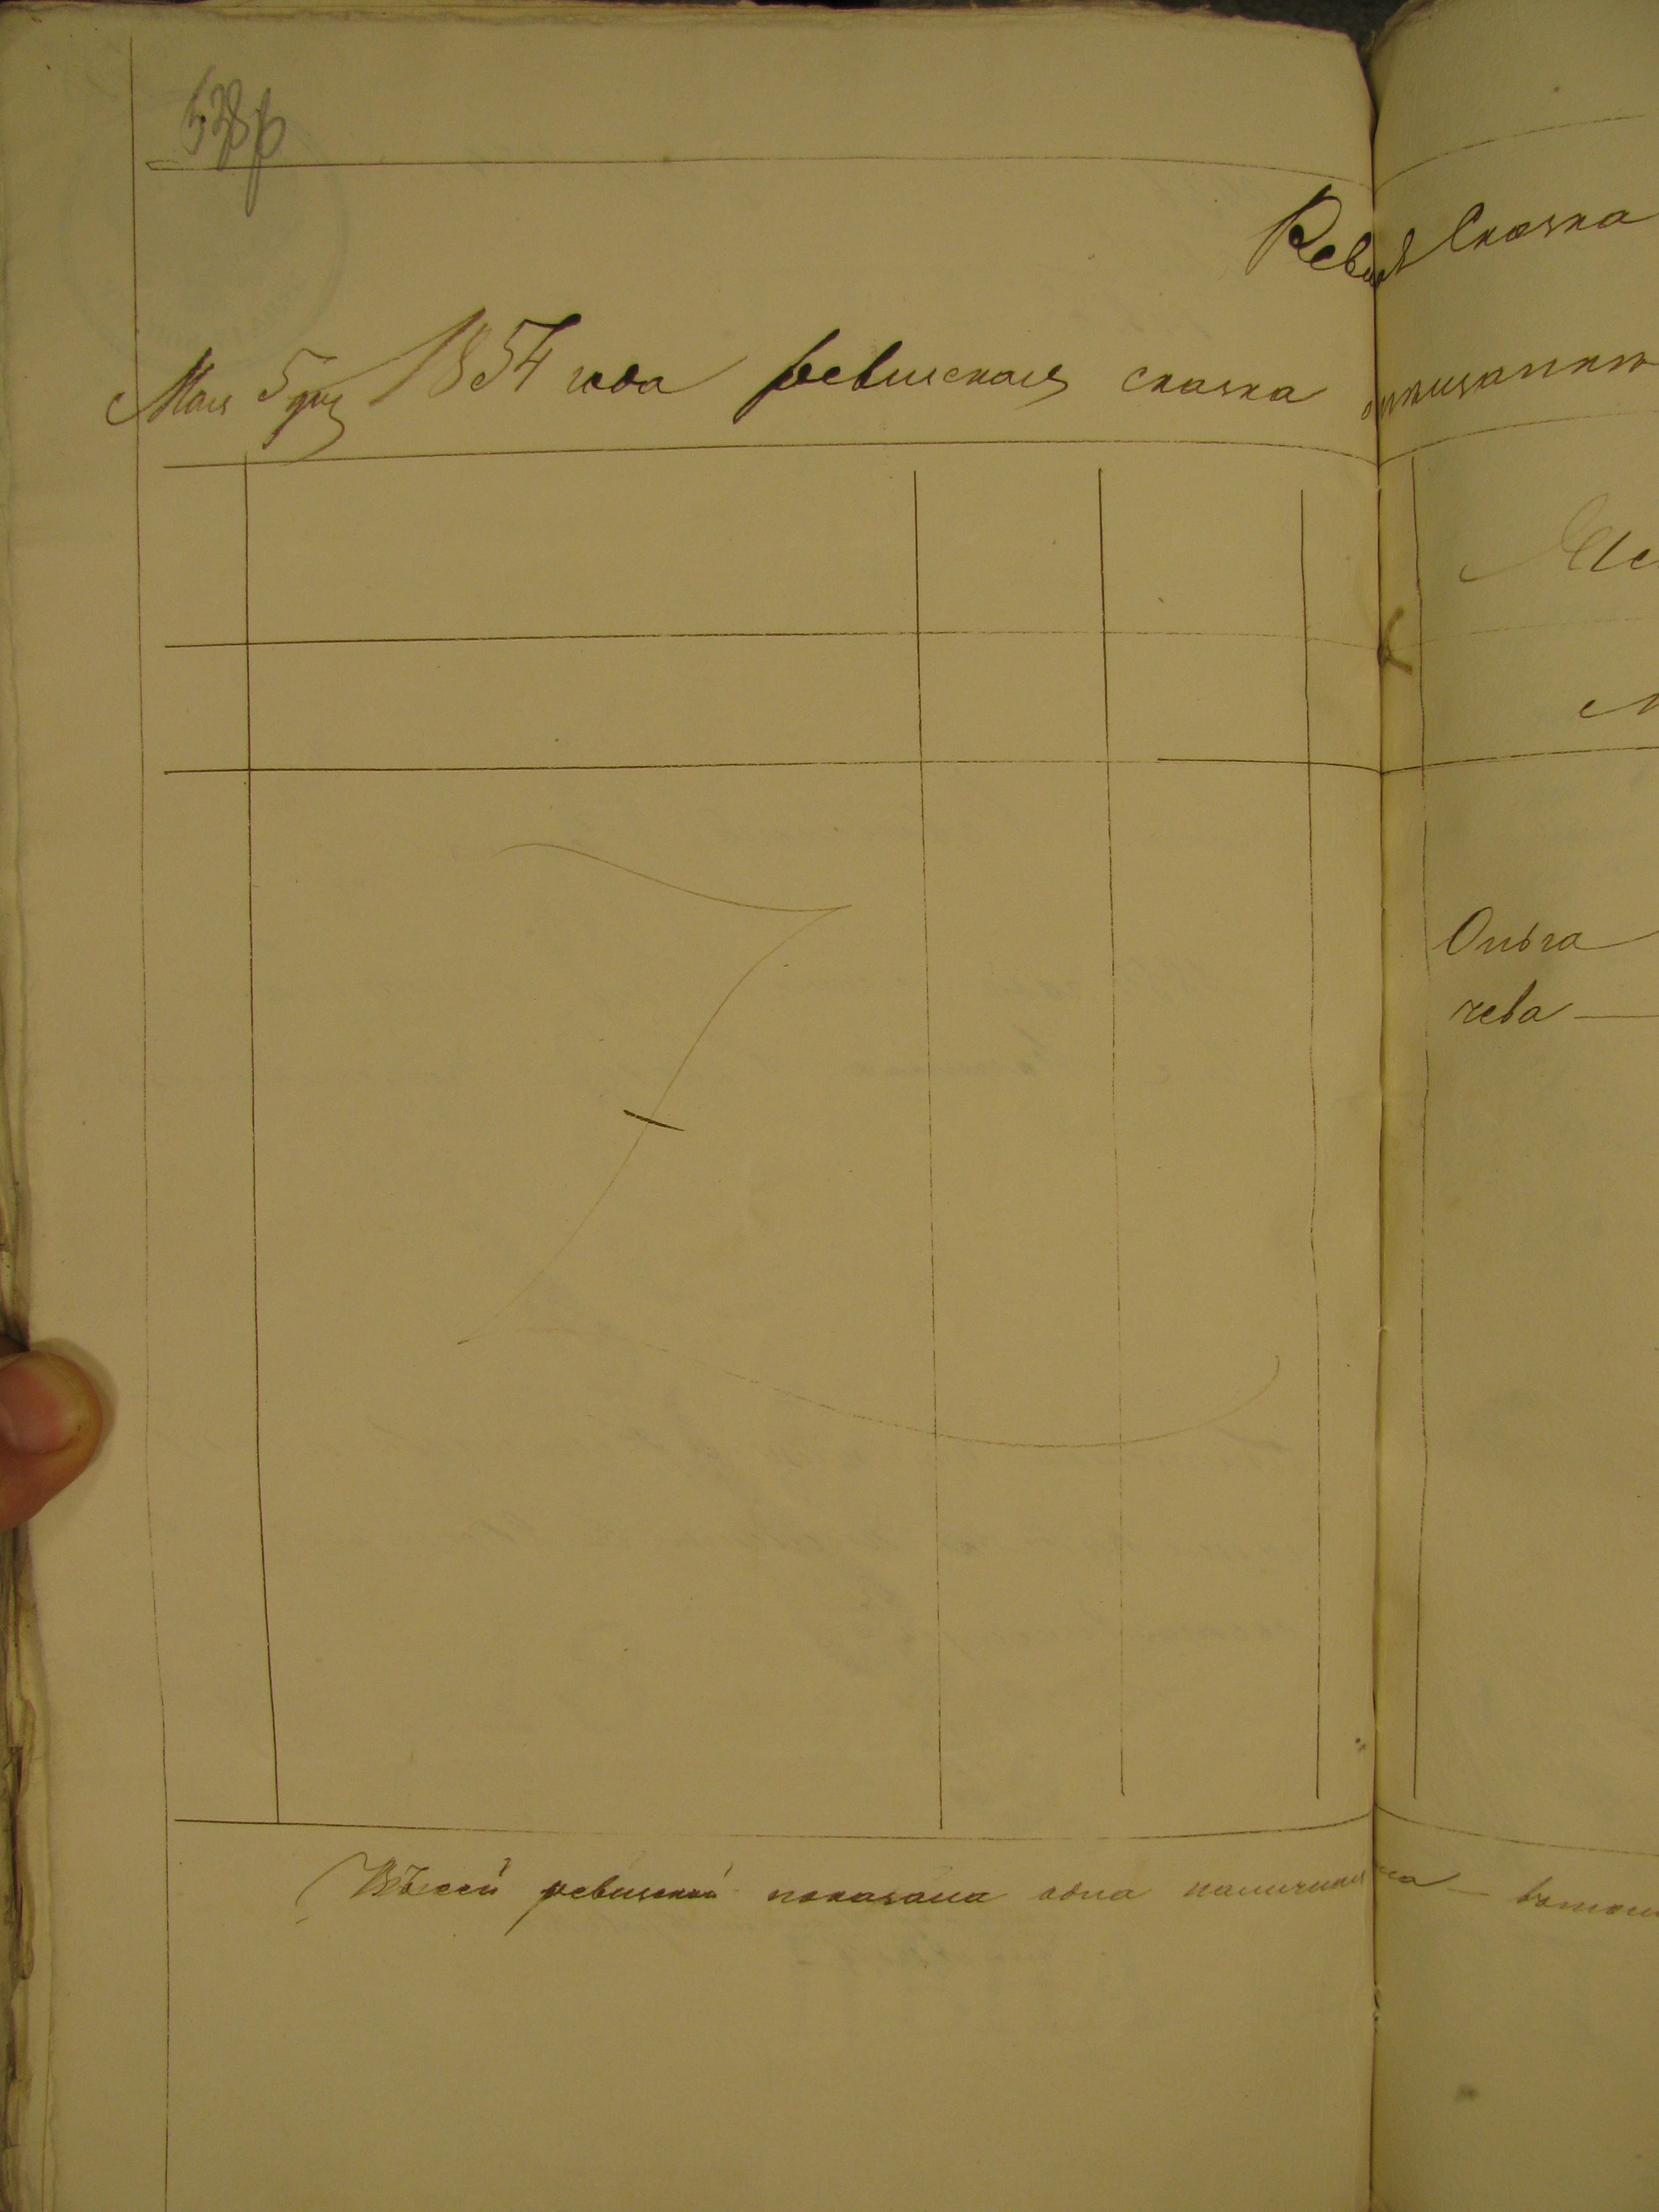 538р
Ревизск Сказка
Мая 5 дня 1854 года ревизская сказка
Ольга
чева
Въ сей ревизской показана одна